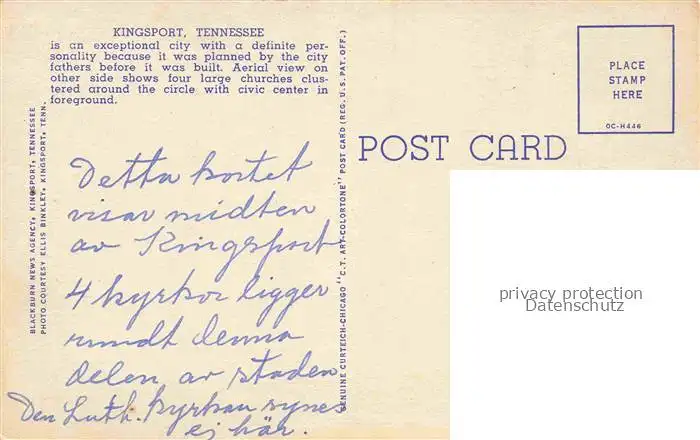 KINGSPORT, TENNESSEE
is an exceptional city with a definite per-
sonality because it was planned by the city
fathers before it was built. Aerial view on
other side shows four large churches clus-
tered around the circle with civic center in
foreground.
BLACKBURN NEWS AGENCY, KINGSPORT, TENNESSEE
PHOTO COURTESY ELLIS BINKLEY, KINGSPORT, TENN.
Detta kortet
visar midten
av Kingsport
4 kyrkor ligger
rundt denna
delen av staden
Den Luth. kyrkan synes
ej här.
GENUINE CURTEICH-CHICAGO "C.T. ART-COLORTONE" POST CARD (REG. U.S. PAT. OFF.)
POST CARD
PLACE
STAMP
HERE
OC-H446
privacy protection
Datenschutz